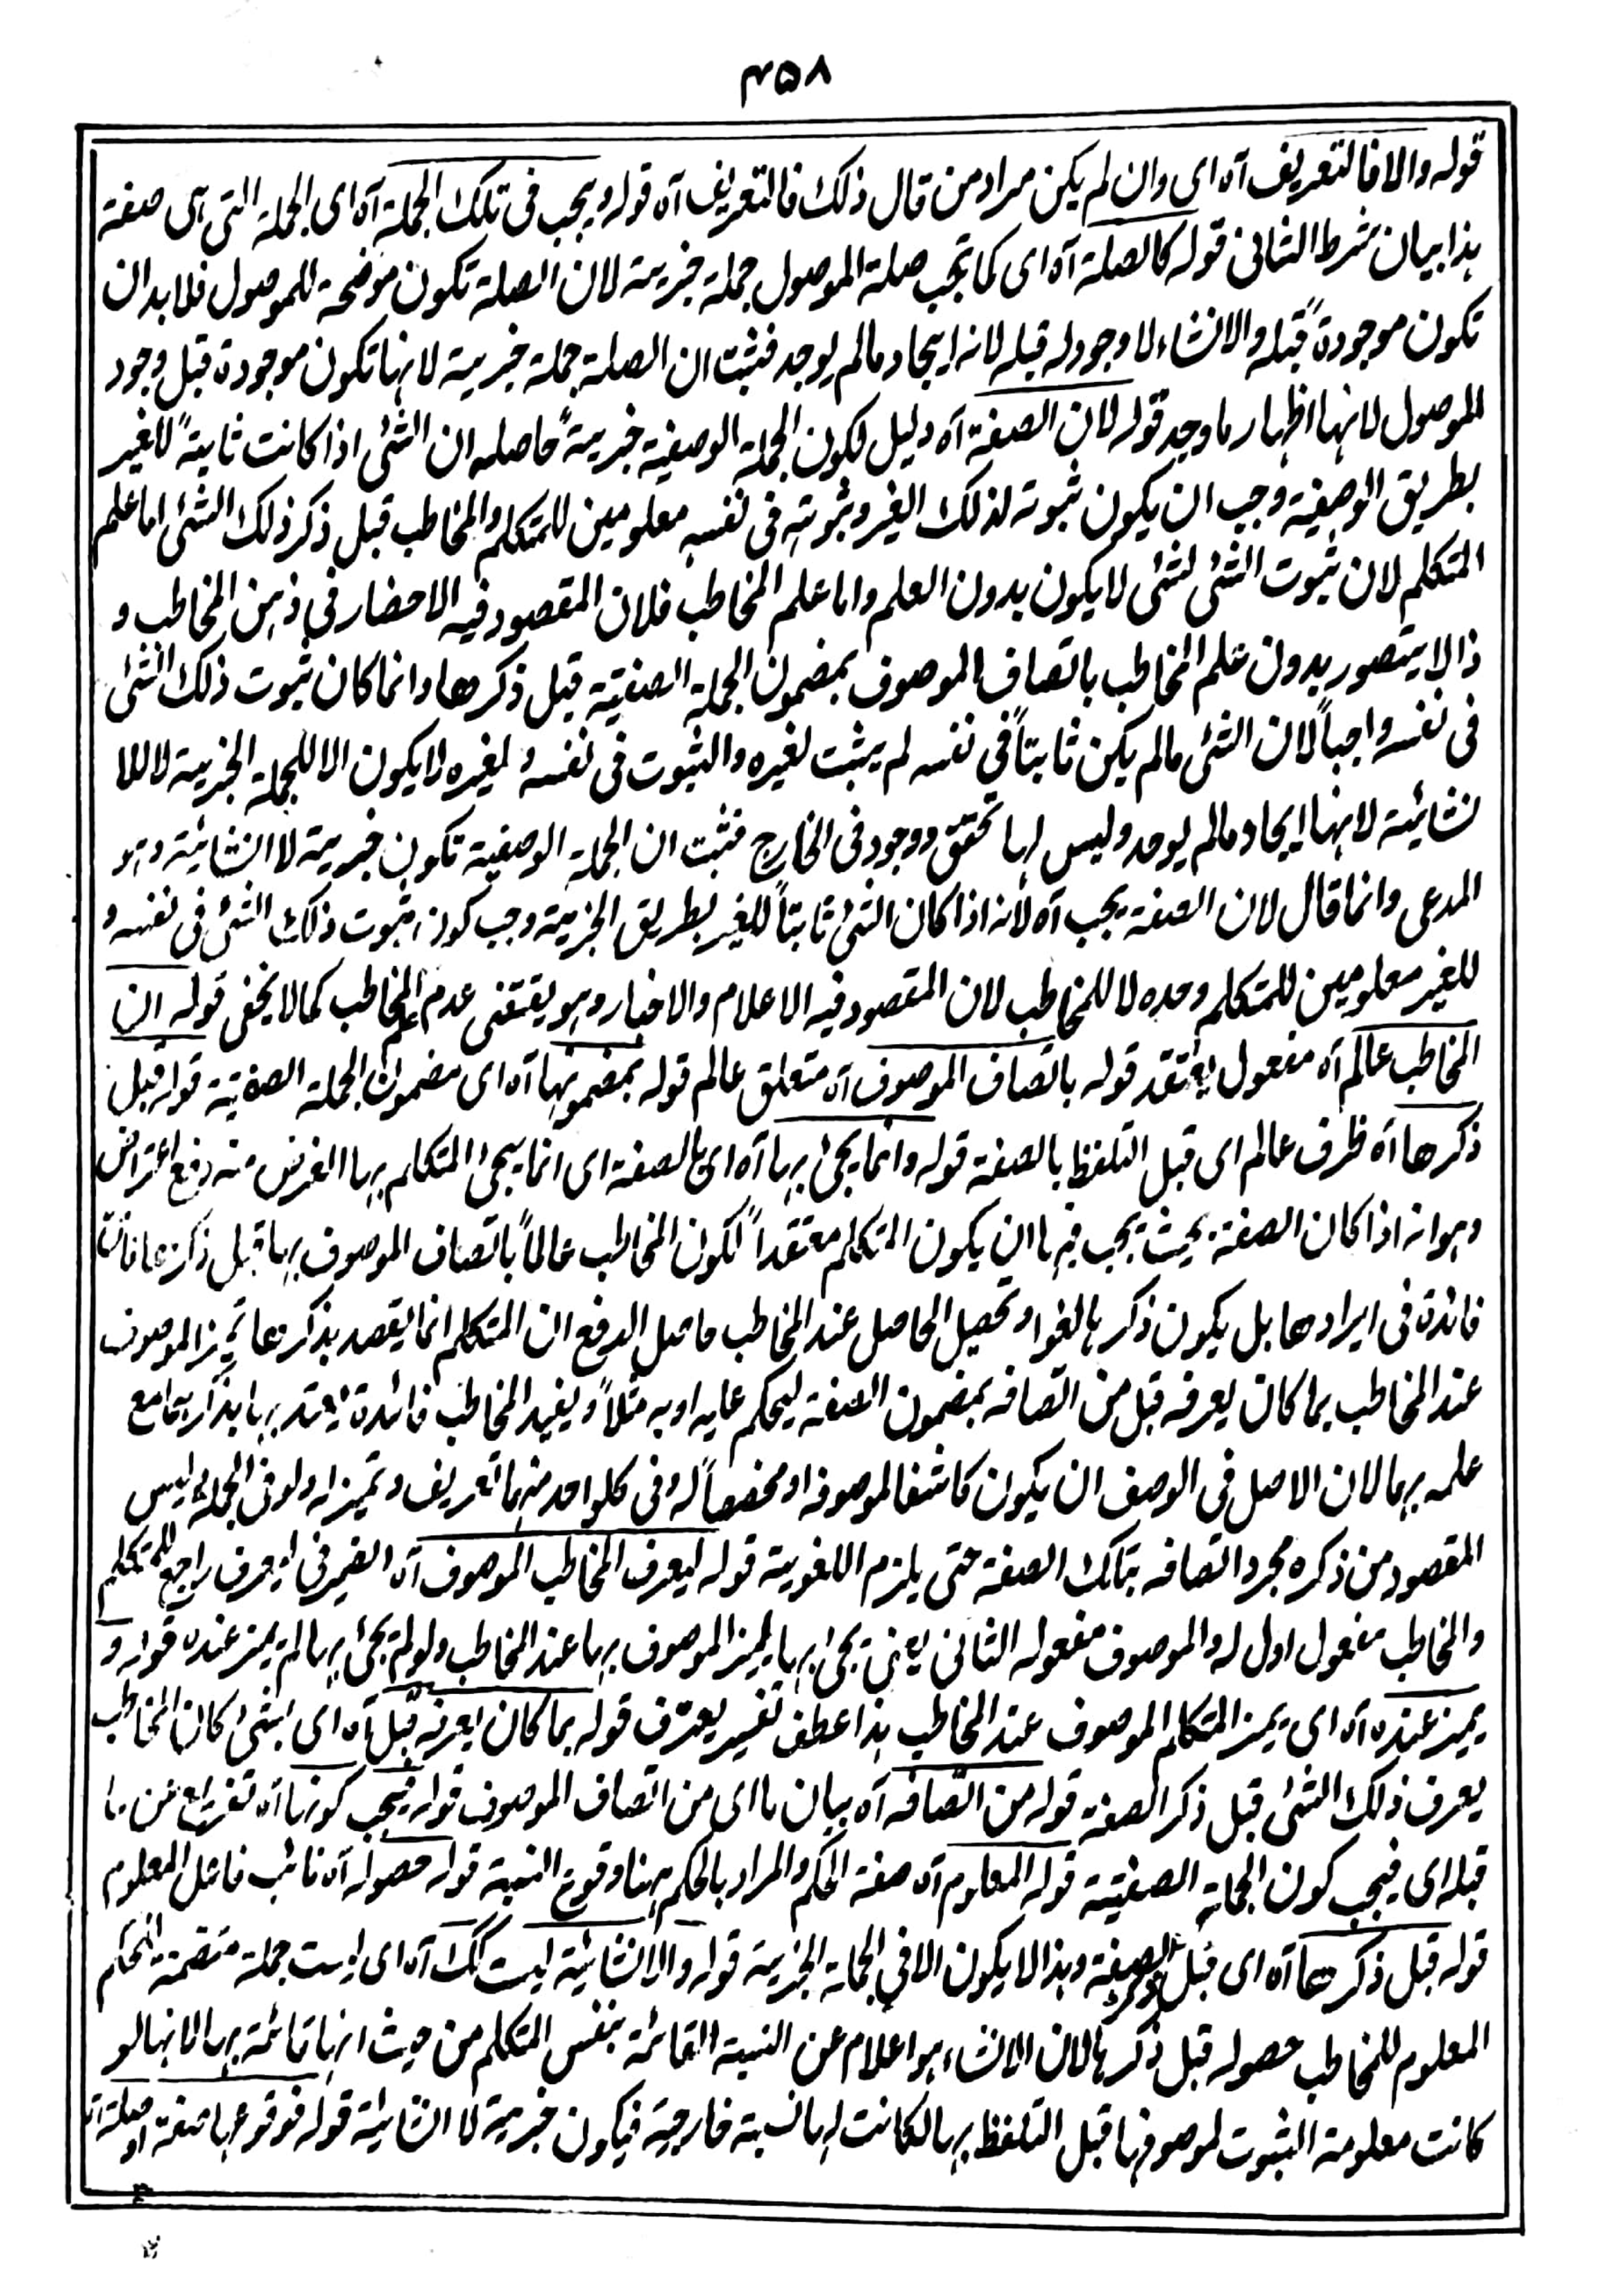 ۴۵۸
قوله والا فالتعریف آه ای وان لم یکن مراد من قال ذلک فالتعریف آه قوله ویجب فی تلک الجملة آه ای الجملة التی ہی صفة
ہذا بیان شرط الثانی قوله کالصلة آه ای کما تجب صلة الموصول جملة خبریة لان الصلة تکون موضحة للموصول فلا بد ان
تکون موجودةً قبله والانشاء لا وجود له قبله لانه ایجاد مالم یوجد فثبت ان الصلة جملة خبریة لانہا تکون موجودة قبل وجود
الموصول لانہا اظہار ما وجد قوله لان الصفة آه دلیل لکون الجملة الوصفیة خبریةً حاصله ان الشئ اذا کانت ثابتةً للغیر
بطریق الوصفیة وجب ان یکون ثبوته لذلک الغیر وثبوته فی نفسه معلومین للمتکلم والمخاطب قبل ذکر ذلک الشئ اما علم
المتکلم لان ثبوت الشئ لشئ لا یکون بدون العلم واما علم المخاطب فلان المقصود فیه الاحضار فی ذہن المخاطب و
ذا لا یتصور بدون علم المخاطب باتصاف الموصوف بمضمون الجملة الصفتیة قبل ذکرها وانما کان ثبوت ذلک الشئ
فی نفسه واجباً لان الشئ مالم یکن ثابتاً فی نفسه لم یثبت لغیره والثبوت فی نفسه و لغیره لا یکون الا للجملة الخبریة لا للا
نشائیة لانہا ایجاد مالم یوجد ولیس لہا تحقق ووجود فی الخارج فثبت ان الجملة الوصفیة تکون خبریة لا انشائیة وہو
المدعی وانما قال لان الصفة یجب آه لانه اذا کان الشئ ثابتاً للغیر بطریق الخبریة وجب کون ثبوت ذلک الشئ فی نفسه و
للغیر معلومین للمتکلم وحده لا للمخاطب لان المقصود فیه الاعلام والاخبار وہو یقتضی عدم علم المخاطب کما لا یخفی قوله ان
المخاطب عالم آه مفعول یعتقد قوله باتصاف الموصوف آه متعلق عالم قوله بمضمونہا آه ای مضمون الجملة الصفتیة قوله قبل
ذکرها آه ظرف عالم ای قبل التلفظ بالصفة قوله وانما یجئ بہا آه ای بالصفة ای انما یجئ المتکلم بہا الغرض منه دفع اعتراض
وہو انه اذا کان الصفة بحیث یجب فیہا ان یکون المتکلم معتقداً لکون المخاطب عالماً باتصاف الموصوف بہا قبل ذکرها فات
فائدة فی ایرادها بل یکون ذکرہا لغوا وتحصیل الحاصل عند المخاطب حاصل الدفع ان المتکلم انما یقصد بذکرها تمیز الموصوف
عند المخاطب بما کان یعرفه قبل من اتصافه بمضمون الصفة لیحکم علیه او به مثلاً ویفید المخاطب فائدة یعتد بہا بذکرہا مع
علمه بہا لان الاصل فی الوصف ان یکون کاشفا لموصوفه او مخصصاً له وفی کل واحد منہما تعریف وتمیز له ولو فی الجملة ولیس
المقصود من ذکره مجرد اتصافه بتلک الصفة حتی یلزم اللغویة قوله لیعرف المخاطب الموصوف آه الضمیر فی لیعرف راجع للمتکلم
والمخاطب مفعول اول له والموصوف مفعوله الثانی یعنی یجئ بہا لیمیز الموصوف بہا عند المخاطب ولو لم یجئ بہا لم یمیز عنده قوله و
یمیز عنده آه ای یمیز المتکلم الموصوف عند المخاطب ہذا عطف تفسیر یعرف قوله بما کان یعرفه قبل آه ای بشئ کان المخاطب
یعرف ذلک الشئ قبل ذکر الصفة قوله من اتصافه آه بیان ما ای من اتصاف الموصوف قوله فیجب کونہا آه تفریع عن ما
قبله ای فیجب کون الجملة الصفتیة قوله المعلوم آه صفة الحکم والمراد بالحکم ہہنا وقوع النسبة قوله حصوله آه نائب فاعل المعلوم
قوله قبل ذکرها آه ای قبل ذکر الصفة وہذا لا یکون الا فی الجملة الخبریة قوله والانشائیة لیست کک آه ای لیست جملة متضمنة للحکم
المعلوم للمخاطب حصوله قبل ذکرہا لان الانشاء ہو اعلام عن النسبة القائمة بنفس المتکلم من حیث انہا قائمة بہا لانہا لو
کانت معلومة الثبوت لموصوفہا قبل التلفظ بہا لکانت لہا نسبة خارجیة فیکون خبریة لا انشائیة قوله فوقوعہا صفة او صلة